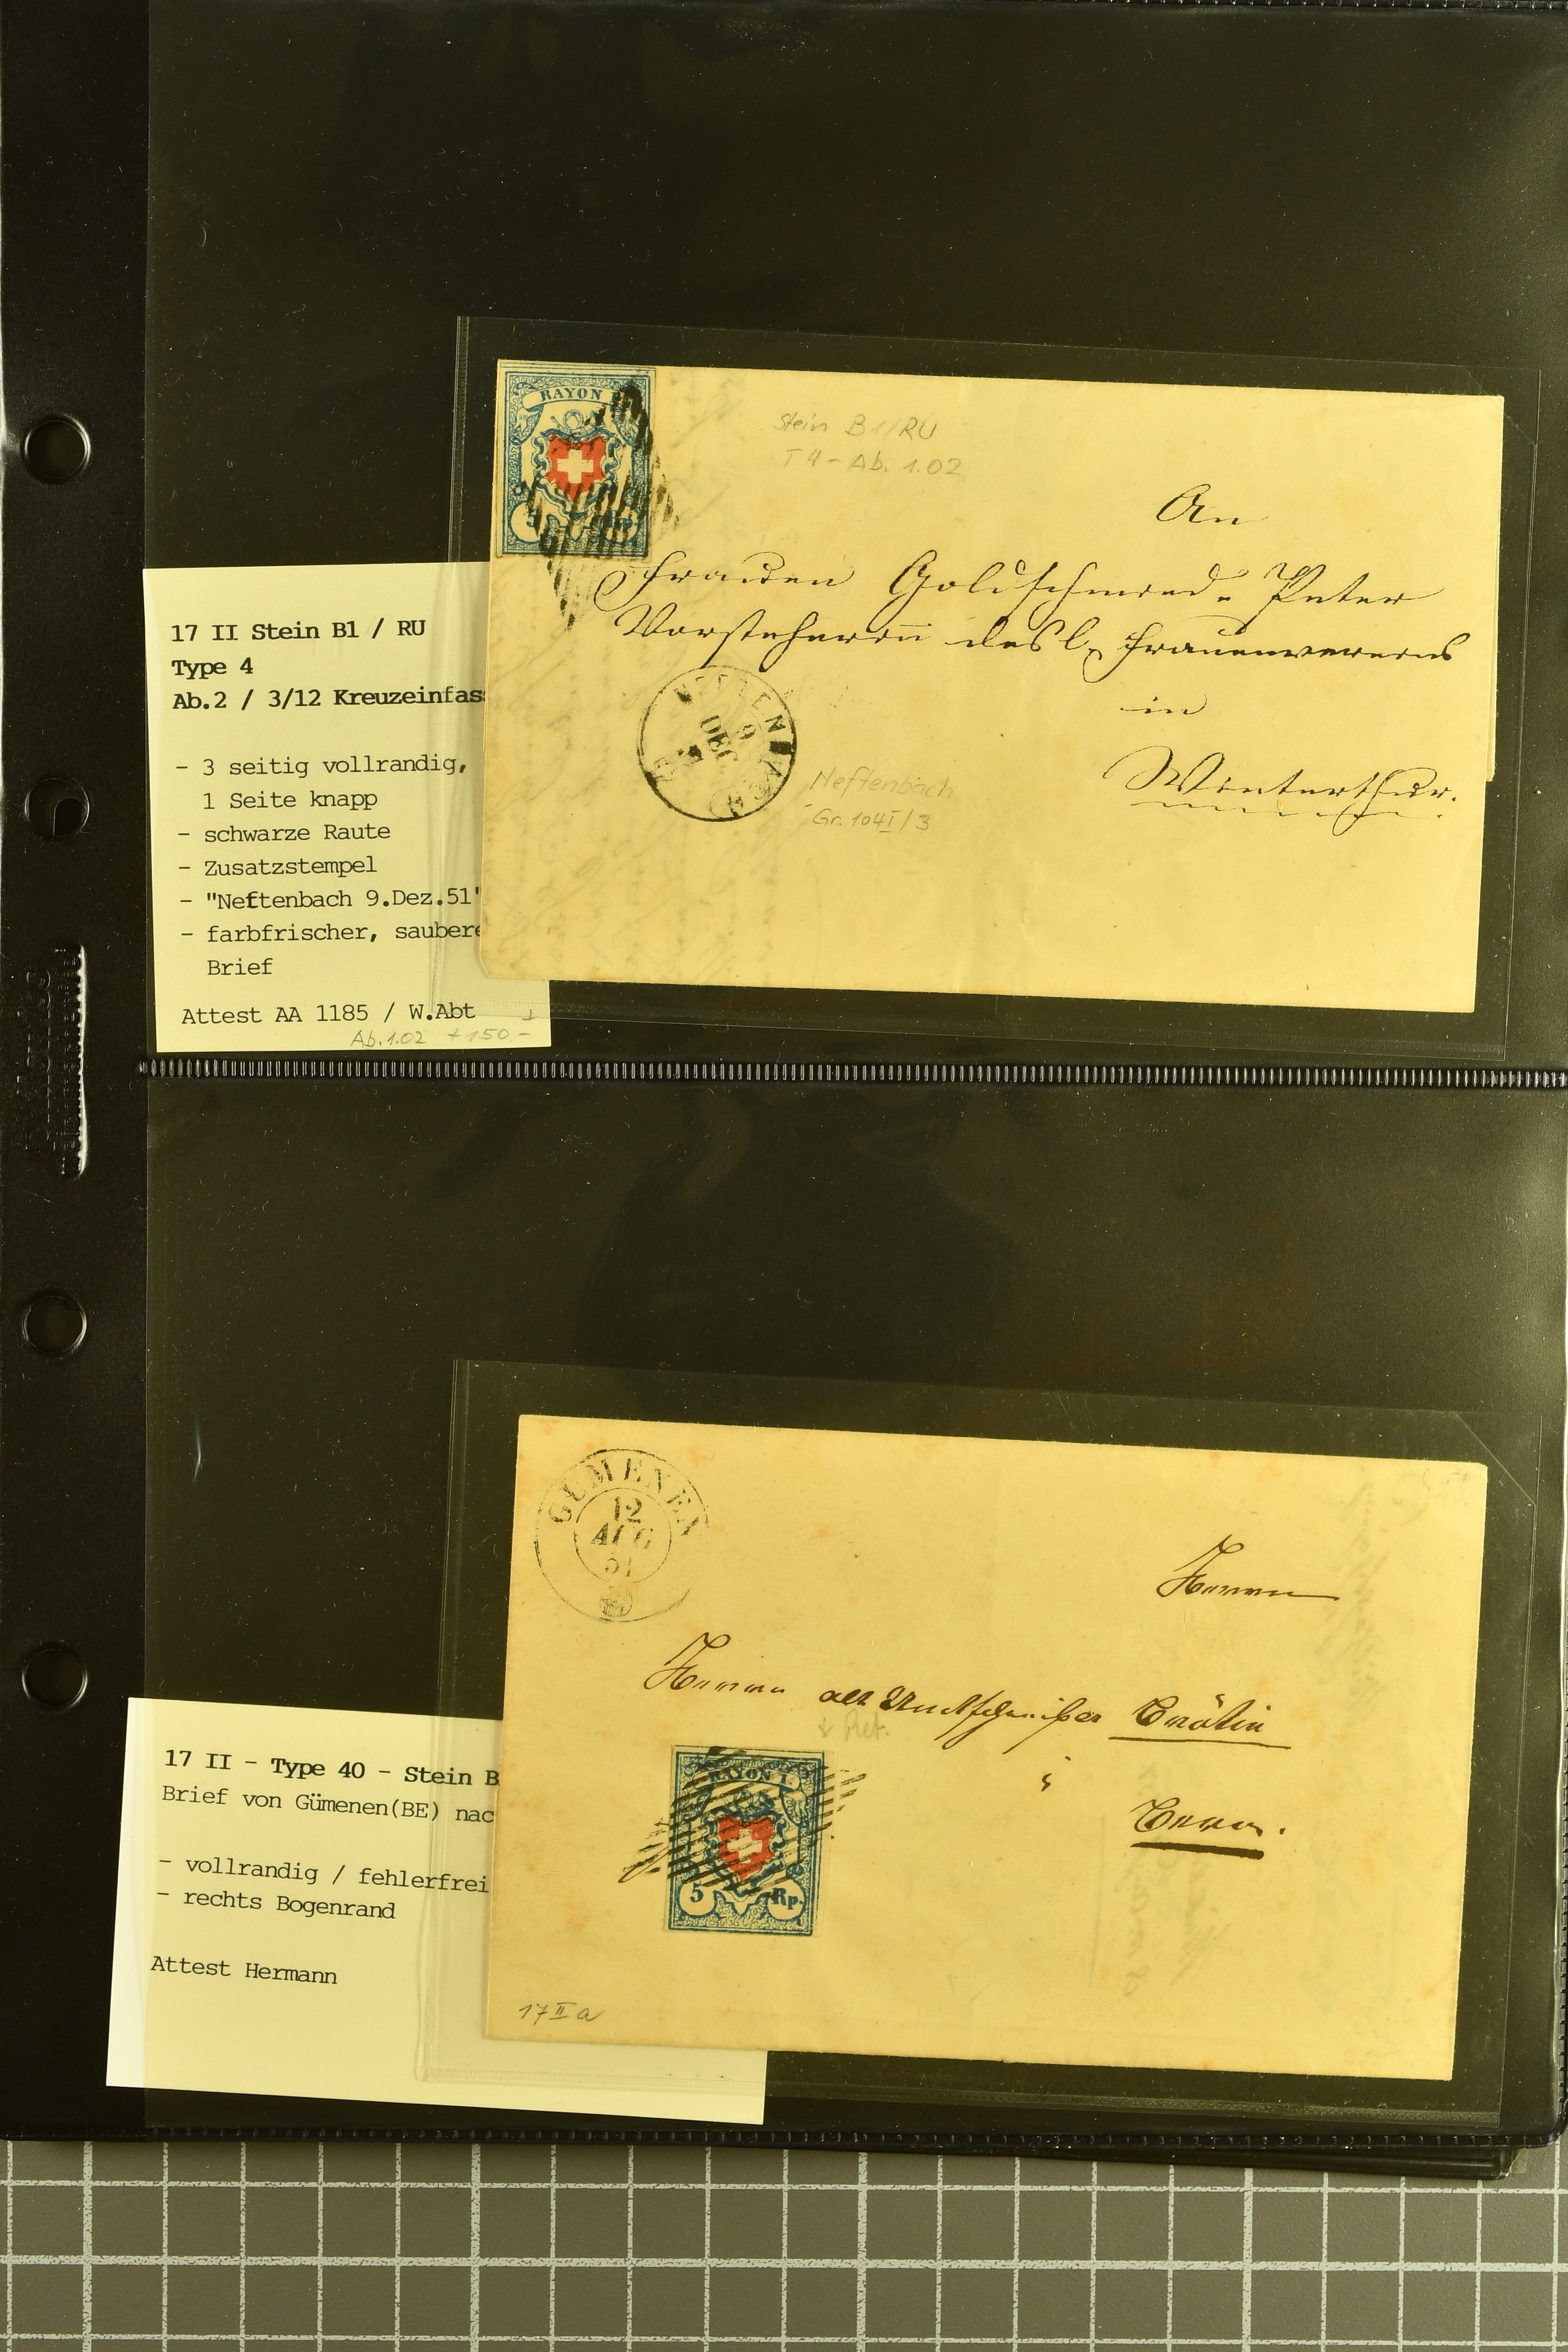 RAYON I
5 Rp.
Stein B1/RU
T4 - Ab. 1.02
An
Frauen Goldschmid-Peter
Vorsteherin des l. Frauenvereins
in
Winterthur.
9
DEC
Neftenbach
Gr. 104 I/3
17 II Stein B1 / RU
Type 4
Ab.2 / 3/12 Kreuzeinfass
- 3 seitig vollrandig,
1 Seite knapp
- schwarze Raute
- Zusatzstempel
- "Neftenbach 9.Dez.51"
- farbfrischer, saubere
Brief
Attest AA 1185 / W.Abt
Ab. 1.02 + 150.-
GÜMENEN
12
AUG
51
Herrn
Herrn alt Amtschreiber
Bern.
RAYON I.
5 Rp.
17 II a
17 II - Type 40 - Stein B
Brief von Gümenen(BE) nac
- vollrandig / fehlerfrei
- rechts Bogenrand
Attest Hermann